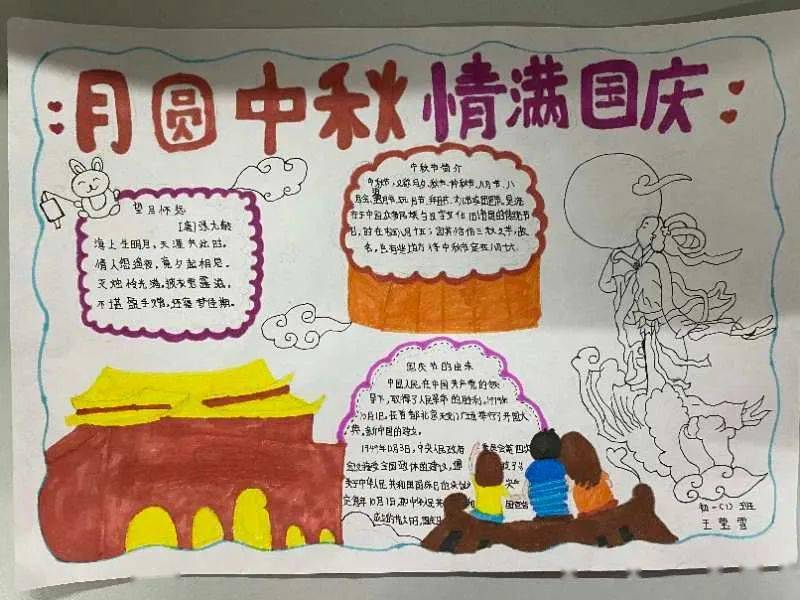 月圆中秋 情满国庆
望月怀远
[唐]张九龄
海上生明月,天涯共此时。
情人怨遥夜,竟夕起相思。
灭烛怜光满,披衣觉露滋。
不堪盈手赠,还寝梦佳期。
中秋节简介
中秋节,又称月夕、秋节、仲秋节、八月节、八
月会、追月节、玩月节、拜月节、
在于中国众多民族与汉字文化
日,时在农历八月十五;因其恰值三秋之半,故
名,也有些地方将中秋节定在八月十六
国庆节的由来
中国人民,在中国共产党的领
导下,取得了人民革命的胜利,1949年
10月1日,在首都北京天安门广场举行了开国大
典,新中国的建立。
1949年12月3日,中央人民政府 委员会第四次
会议接受全国政协的建议,
关于中华人民共和国国庆日的决议
定每年10月1日,即中华人民共
初一(1)班
王莹雪